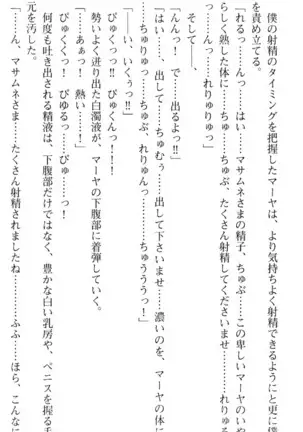 僕の射精のタイミングを把握したマーヤは、より気持ちよく射精できるようにと更に僕
を責め立てる。
「れるっ……んっ……はい……マサムネさまの精子、ちゅぷ……この卑しいマーヤのいや
らしく熟した体に……ちゅ、ちゅぷ、たくさん射精してくださいませ……れりゅる
っ……んっ……れりゅりゅっ」
そして――、
「んんっ！　で……出るよっ!!」
「はい……、出して……ちゅむぅ……出して下さいませ……濃いのを、マーヤの体に
……ちゅりゅっ……ちゅぶ、れりゅん……ちゅううっ！」
「い、いくぅっ!!」
びゅくっっ!!　びゅくんっ!!!
「……あぁっ！　熱い……！」
勢いよく迸り出た白濁液が、マーヤの下腹部に着弾していく。
びゅくくっ！　びゅるっ……びゅ……っ！
何度も吐き出される精液は、下腹部だけではなく、豊かな白い乳房や、ペニスを握る手
元を汚した。
「……ん、マサムネさま……たくさん射精されましたね……ふふ……ほら、こんなに